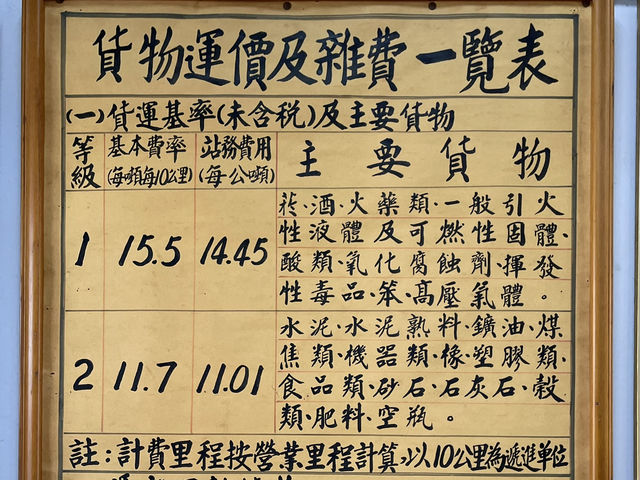 貨物運價及雜費一覽表
(一)貨運基率(未含稅)及主要貨物
等級 基本費率(每噸每10公里) 站務費用(每公噸) 主要貨物
1 15.5 14.45
菸、酒、火藥類、一般引火
性液體及可燃性固體、
酸類、氧化腐蝕劑、揮發
性毒品、笨、高壓氣體。
2 11.7 11.01
水泥、水泥熟料、鑛油、煤
焦類、機器類、橡塑膠類、
食品類、砂石、石灰石、穀
類、肥料、空瓶。
註:計費里程按營業里程計算,以10公里為遞進單位